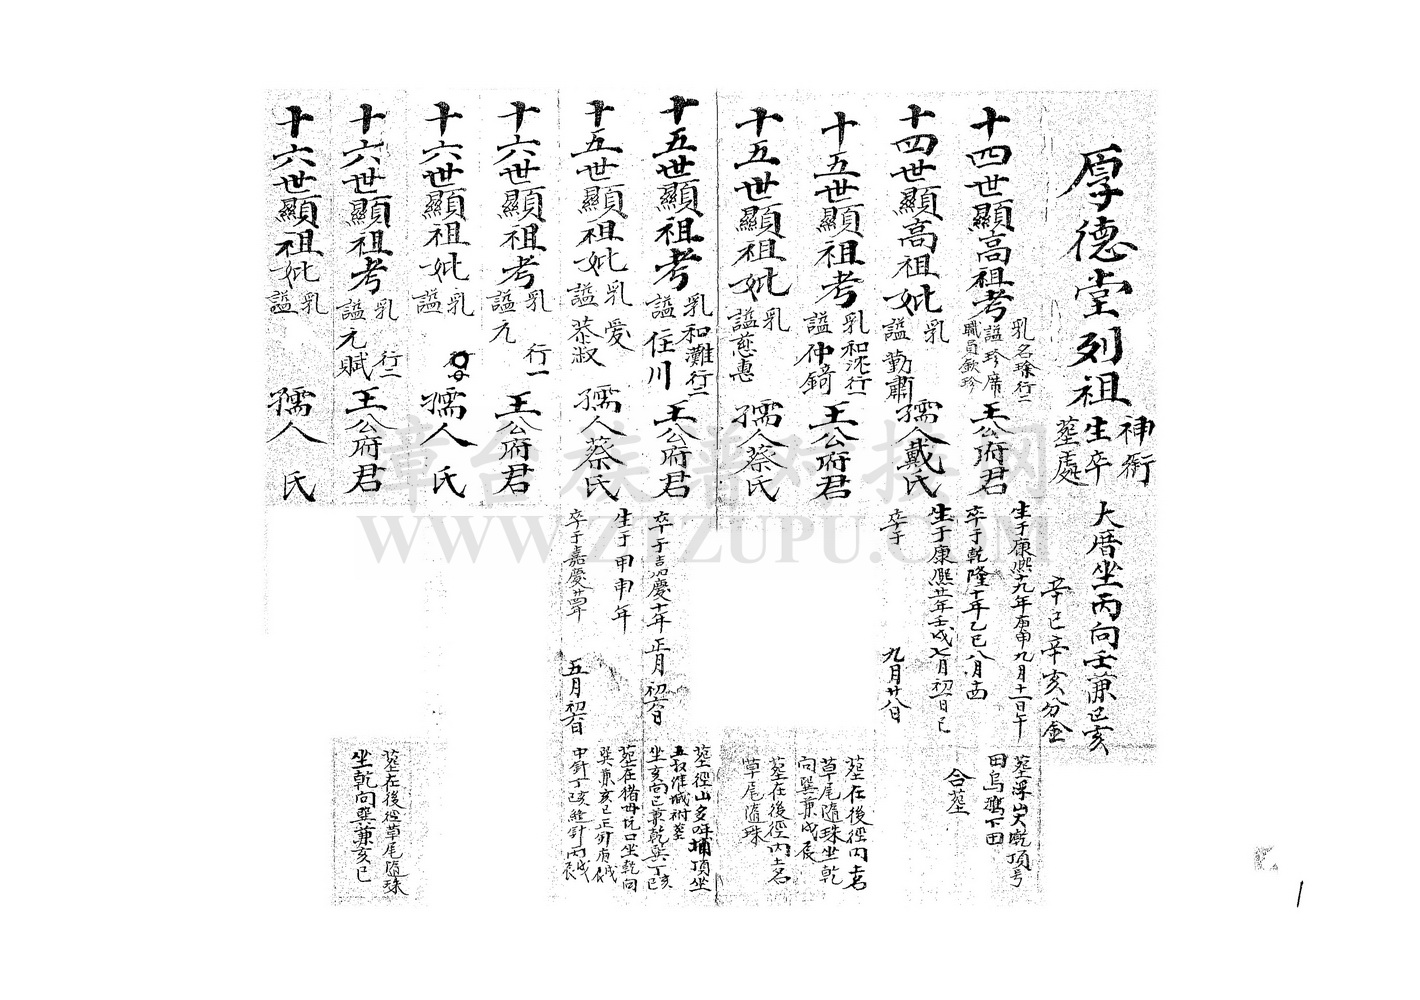 厚德堂列祖
神衔
生卒
墓處
大厝坐丙向壬兼巳亥
辛巳辛亥分金
十四世顯高祖考
乳名 行二
諡珍席
職員欽珍
王公府君
生于康熙十九年庚申九月十一日午
卒于乾隆十年乙巳八月
墓浮山大 頂号
田烏 下田
十四世顯高祖妣
乳
諡勤肅
孺人戴氏
生于康熙廿一年壬戌七月初一日巳
卒于
九月廿八日
合墓
十五世顯祖考
乳和沈行一
諡仲錡
王公府君
墓在後徑內土名
草尾隨珠坐乾
向巽兼戌辰
十五世顯祖妣
乳
諡慈惠
孺人蔡氏
墓在後徑內土名
草尾隨珠
十五世顯祖考
乳和灘行二
諡 川
王公府君
卒于嘉慶十年正月初六日
墓徑山 埔頂坐
坐亥向巳兼乾巽丁巳
十五世顯祖妣
乳愛
諡恭淑
孺人蔡氏
生于甲申年
卒于嘉慶廿四年
五月初六日
墓在 坑口坐乾向
巽兼亥巳正針
中針丁亥 針丙戌
十六世顯祖考
乳
行一
諡元
王公府君
十六世顯祖妣
乳
諡
孺人 氏
十六世顯祖考
乳
行二
諡元賦
王公府君
墓在後徑草尾隨珠
坐乾向巽兼亥巳
十六世顯祖妣
乳
諡
孺人 氏
漳台族譜对接网
WWW.ZTZUPU.COM
1